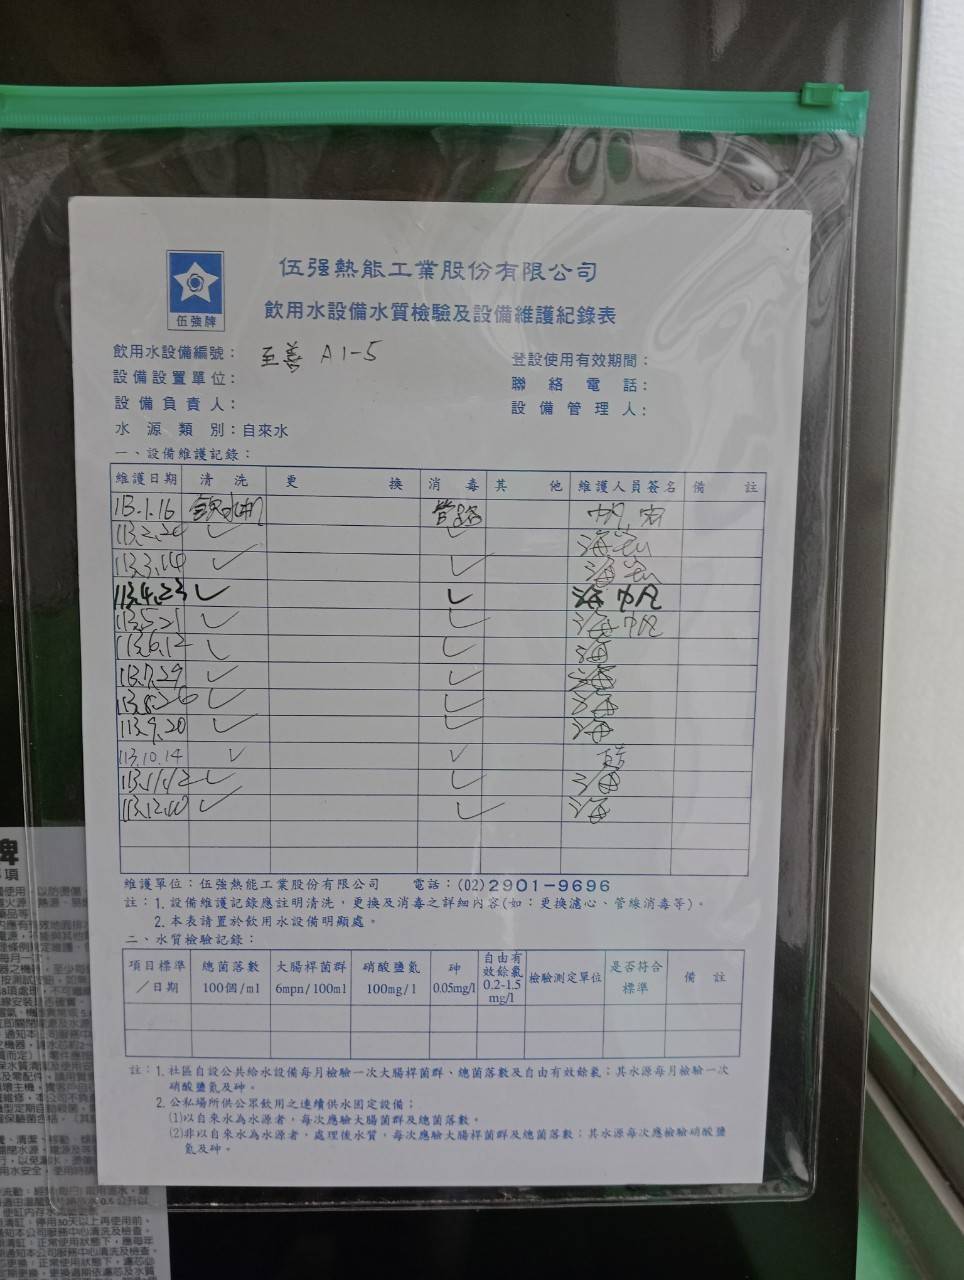 伍強牌
伍强熱能工業股份有限公司
飲用水設備水質檢驗及設備維護紀錄表
飲用水設備編號： 至善 A1-5
登設使用有效期間：
設備設置單位：
聯絡電話：
設備負責人：
設備管理人：
水源類別：自來水
一、設備維護記錄：
維護日期 清洗 更換 消毒 其他 維護人員簽名 備註
113.1.16 飲水機 管路
113.2.26 ✓ ✓
113.3.14 ✓ ✓
113.4.23 ✓ ✓ 海帆
113.5.21 ✓ ✓ 海帆
113.6.12 ✓ ✓ 海
113.7.29 ✓ ✓ 海
113.8.26 ✓ ✓ 海
113.9.20 ✓ ✓ 海
113.10.14 ✓ ✓
113.11.12 ✓ ✓ 海
113.12.10 ✓ ✓ 海
維護單位：伍強熱能工業股份有限公司 電話：(02)2901-9696
註：1. 設備維護記錄應註明清洗，更換及消毒之詳細內容(如：更換濾心、管線消毒等)。
2. 本表請置於飲用水設備明顯處。
二、水質檢驗記錄：
項目標準／日期 總菌落數 100個/ml 大腸桿菌群 6mpn/100ml 硝酸鹽氮 100mg/l 砷 0.05mg/l 自由有效餘氯 0.2-1.5 mg/l 檢驗測定單位 是否符合標準 備註
註：1. 社區自設公共給水設備每月檢驗一次大腸桿菌群、總菌落數及自由有效餘氯；其水源每月檢驗一次
硝酸鹽氮及砷。
2. 公私場所供公眾飲用之連續供水固定設備；
(1)以自來水為水源者，每次應驗大腸菌群及總菌落數。
(2)非以自來水為水源者，處理後水質，每次應驗大腸桿菌群及總菌落數；其水源每次應檢驗硝酸鹽
氮及砷。